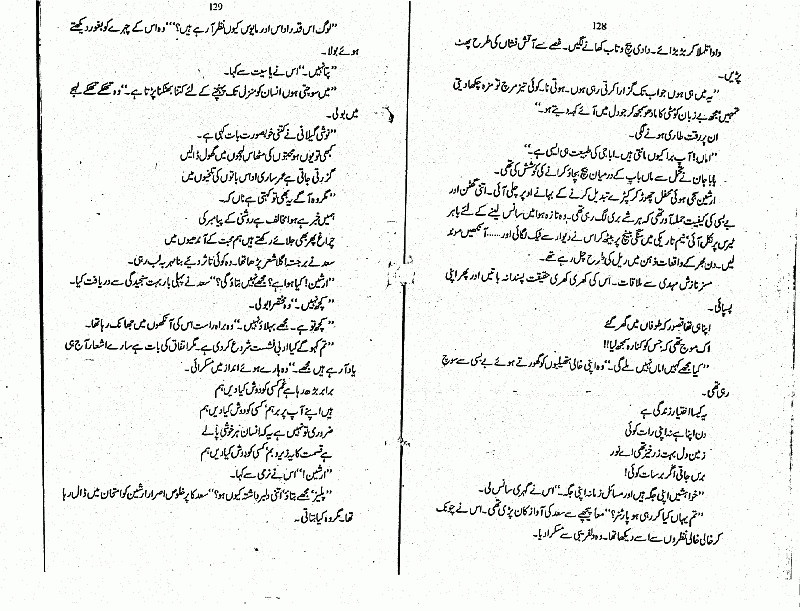 128
دادا تلملا کر بڑبڑائے۔ دادی پیچ و تاب کھانے لگیں۔ غصے سے آتش فشاں کی طرح پھٹ
پڑیں۔
”یہ میں ہی ہوں جواب تک گزارا کرتی رہی ہوں۔ ہوتی نا۔ کوئی تیز مرچ تو مزہ چکھا دیتی
تمہیں مجھ بے زبان کو مٹی کا مادھو سمجھ کر جو دل میں آئے کہہ دیتے ہو۔“
ان پر رقت طاری ہونے لگی۔
”اماں! آپ برا کیوں مانتی ہیں۔ ابا جی کی طبیعت ہی ایسی ہے۔“
بابا جان نے تحمل سے ماں باپ کے درمیان بیچ بچاؤ کرانے کی کوشش کی تھی۔
ارشین سجی ہوئی محفل چھوڑ کر کپڑے تبدیل کرنے کے بہانے اوپر چلی آئی۔ اتنی گھٹن اور
بے بسی کی کیفیت حملہ آور تھی کہ ہر شے بری لگ رہی تھی۔ وہ تازہ ہوا میں سانس لینے کے لئے باہر
ٹیرس پر نکل آئی، نیم تاریکی میں سنگی بینچ پر بیٹھ کر اس نے دیوار سے ٹیک لگائی اور ...... آنکھیں موند
لیں۔ دن بھر کے واقعات ذہن میں ریل کی طرح چل رہے تھے۔
مسز نازش مہدی سے ملاقات۔ اس کی کھری کھری حقیقت پسندانہ باتیں اور پھر اپنی
پسپائی۔
اپنا ہی تھا قصور کہ طوفاں میں گھر گئے
اک موج تھی کہ جس کو کنارہ سمجھ لیا!!
”کیا مجھے کہیں اماں نہیں ملے گی۔“ وہ اپنی خالی ہتھیلیوں کو گھورتے ہوئے بے بسی سے سوچ
رہی تھی۔
یہ کیسا اختیار زندگی ہے
نہ دن اپنا ہے نہ اپنی رات کوئی
زمین دل بہت زرخیز تھی اے نور
برس جاتی اگر برسات کوئی!
”خواہشیں اپنی جگہ ہیں اور مسائل زمانہ اپنی جگہ۔“ اس نے گہری سانس لی۔
”تم یہاں کیا کر رہی ہو پارٹنر؟“ معاً پیچھے سے سعد کی آواز کان پڑی تھی۔ اس نے چونک
کر خالی خالی نظروں سے اسے دیکھا تھا۔ وہ دلفریبی سے مسکرا دیا۔
129
”لوگ اس قدر اداس اور مایوس کیوں نظر آ رہے ہیں؟“ وہ اس کے چہرے کو بغور دیکھتے
ہوئے بولا۔
”پتا نہیں۔“ اس نے یاسیت سے کہا۔
”میں سوچتی ہوں انسان کو منزل تک پہنچنے کے لئے کتنا بھٹکنا پڑتا ہے۔“ وہ تھکے تھکے لہجے
میں بولی۔
”نوشی گیلانی نے کتنی خوبصورت بات کہی ہے۔
کبھی تو یوں ہو محبتوں کی مٹھاس لہجوں میں گھول ڈالیں
گزرتی جاتی ہے عمر ساری اداس باتوں کی تلخیوں میں
”مگر وہ آگے یہ بھی تو کہتی ہے ناں کہ۔
ہمیں خبر ہے ہوا مخالف ہے روشنی کے پیامبر کی
چراغ پھر بھی جلائے رکھتے ہیں ہم محبت کے آندھیوں میں
سعد نے برجستہ اگلا شعر پڑھا تھا۔ وہ کوئی تاثر دیئے بنا مہر بہ لب رہی۔
”ارشین! کیا ہوا ہے؟ مجھے نہیں بتاؤ گی؟“ سعد نے پہلی بار بہت سنجیدگی سے دریافت کیا۔
”کچھ نہیں۔“ وہ مختصراً بولی۔
”کچھ تو ہے۔ مجھے بہلاؤ نہیں۔“ وہ براہ راست اس کی آنکھوں میں جھانک رہا تھا۔
”تم کہو گے کیا ادبی نشست شروع کر دی ہے۔ مگر اتفاق کی بات ہے سارے اشعار آج ہی
یاد آ رہے ہیں مجھے۔“ وہ ہارے ہوئے انداز میں مسکرائی۔
برابر بڑھ رہا ہے غم کسی کو دوش کیا دیں ہم
ہیں اپنے آپ پر برہم، کسی کو دوش کیا دیں ہم
ضروری تو نہیں ہے یہ کہ انسان ہر خوشی پا لے
ہے قسمت کا یہ زیروبم، کسی کو دوش کیا دیں ہم
”ارشین!“ اس نے نرمی سے کہا۔
”پلیز، مجھے بتاؤ، اتنی دلبرداشتہ کیوں ہو؟“ سعد کا پرخلوص اصرار ارشین کو امتحان میں ڈال رہا
تھا۔ مگر وہ کیا بتاتی۔